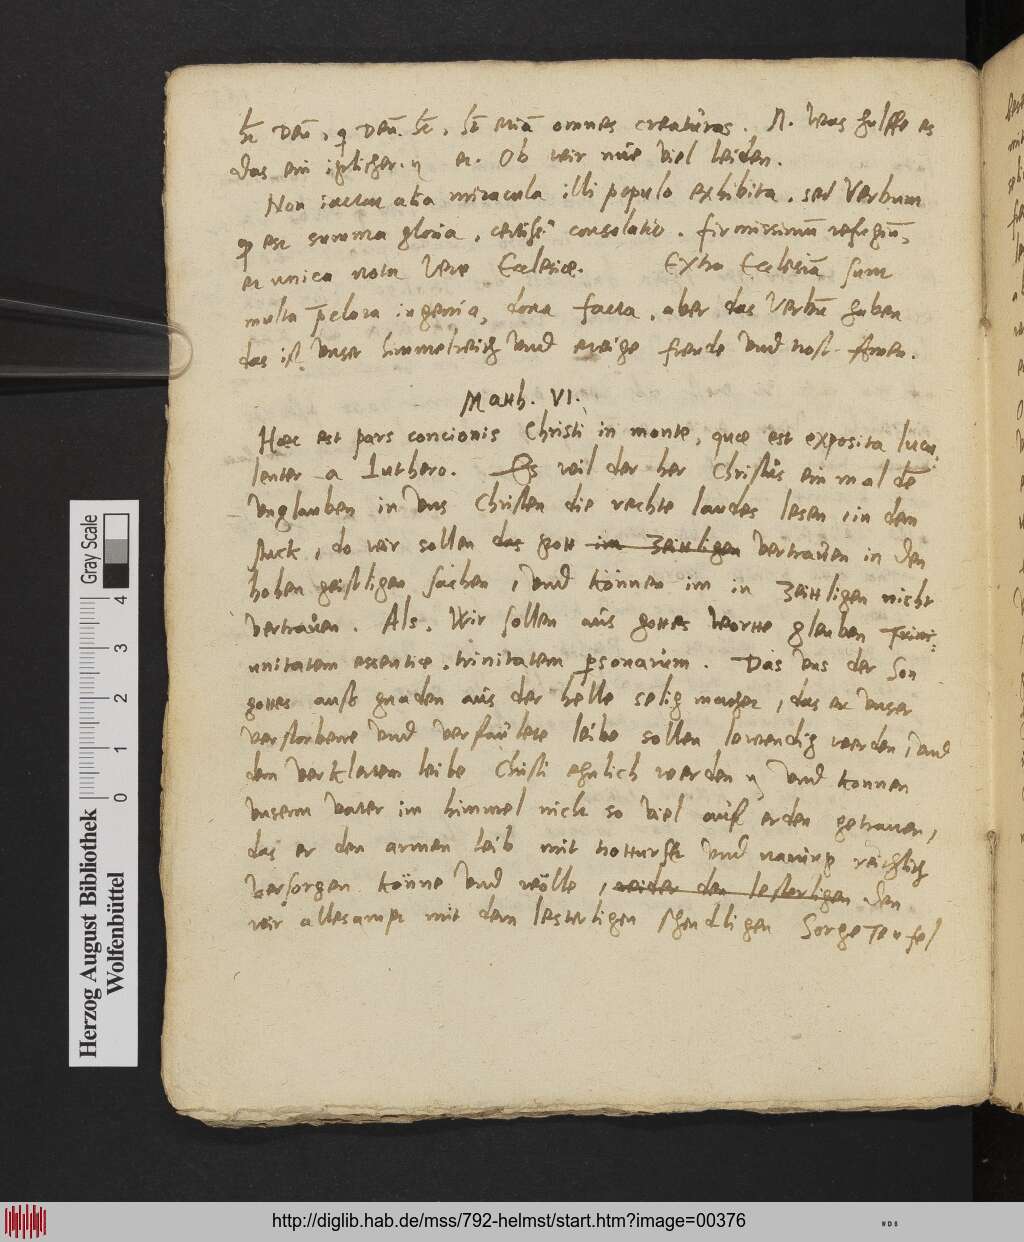 Deū, q Deū. etiā omnes creaturas. R. Was hulffe es
das ein iglicher. Ob wir nue viel leiden.
Non iactat alia miracula illi populo exhibita, sed Verbum
est summa gloria, consolatio. firmissimū refugiū,
et unica nota Vere Ecclesiæ. Extra Ecclesiā sunt
multa p̄clara ingenia, dona facta, aber das Verbū haben
das ist Unser himmelreich Und ewige freude Und
Matth. VI.
Hæc est pars concionis Christi in monte, quæ est exposita lucu
lenter a Luthero. Es wil der her Christus ein mal dē
Unglauben in Uns Christen die rechte laudes lesen, in dem
stuck, do wir sollen das gott im Zeittligen Vertrauen in den
hohen geistligen sachen, Und können im in Zeittligen nicht
Vertrauen. Als. Wir sollen aus gottes Wortte gleuben
unitatem essentiæ, trinitatem psonarum. Das Uns der Son
gottes auß gnaden aus der helle selig machet, das er Unser
Verstorbene Und Verfaulete leibe sollen lewendig werden, Und
dem Verkleretem leibe Christi ehnlich werden Und konnen
Unserm Vater im himmel nicht so Viel auf erden getrauen,
das er den armen leib mit notturft Und narung reichlich
Versorgen könne Und wölle, weider den lesterligen den
wir allesampt mit dem lesterligen schendligen Sorgeteufel
Herzog August Bibliothek
Wolfenbüttel
Gray Scale
0 1 2 3 4
http://diglib.hab.de/mss/792-helmst/start.htm?image=00376